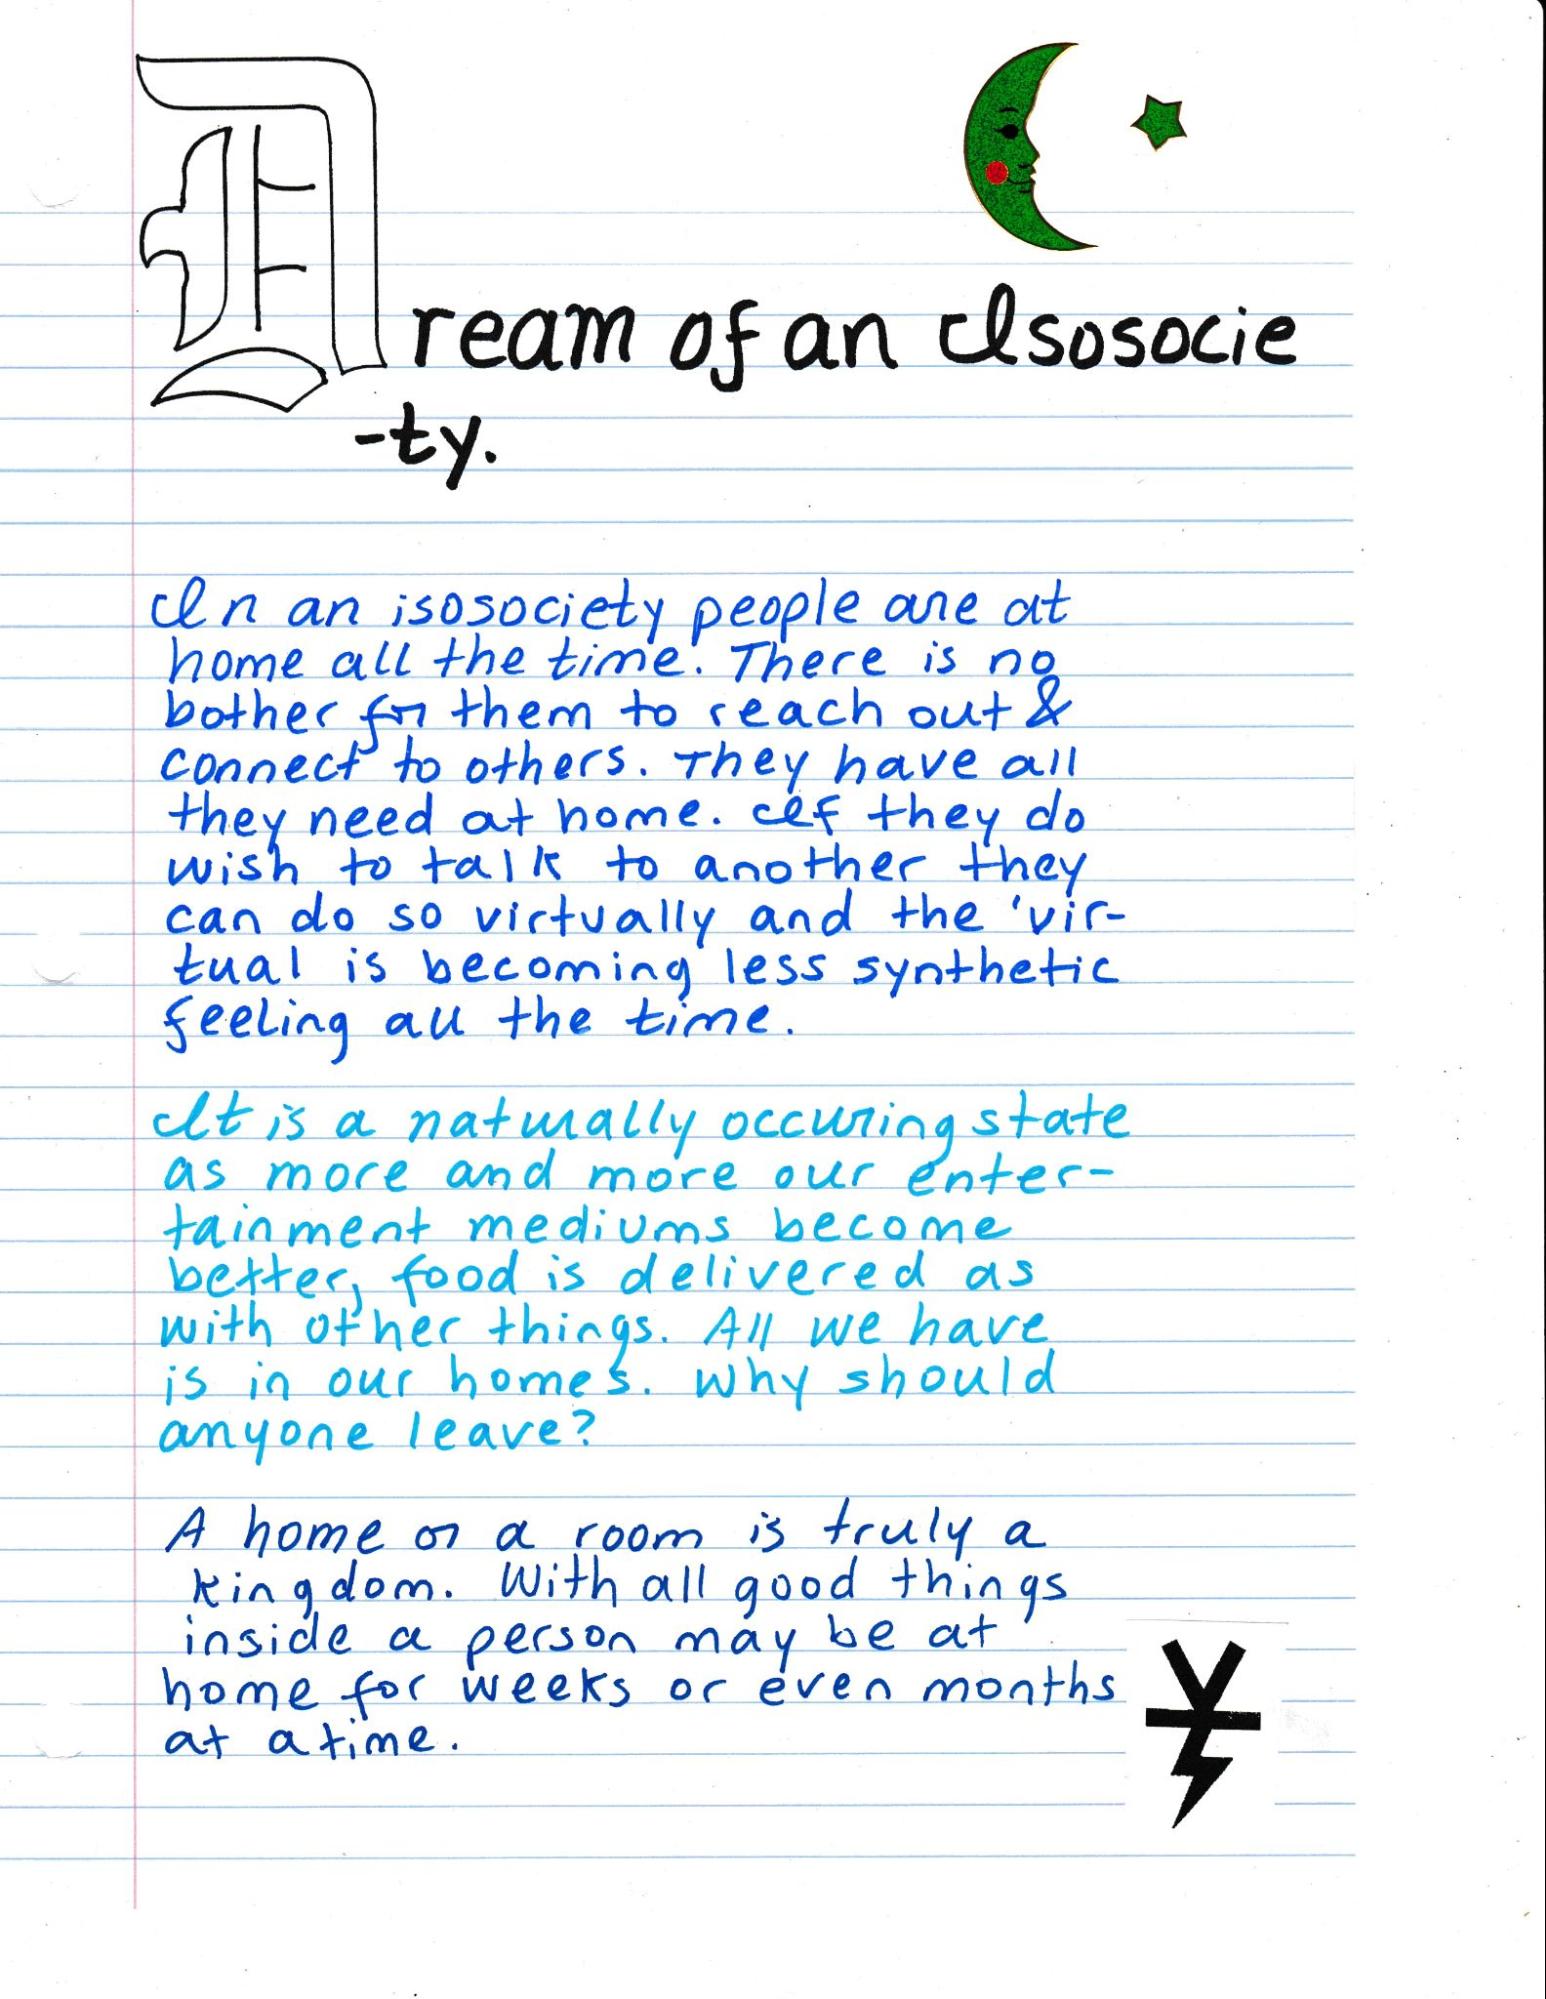 Dream of an Isosocie
-ty.
In an isosociety people are at
home all the time. There is no
bother for them to reach out &
connect to others. They have all
they need at home. If they do
wish to talk to another they
can do so virtually and the 'vir-
tual is becoming less synthetic
feeling all the time.
It is a naturally occuring state
as more and more our enter-
tainment mediums become
better, food is delivered as
with other things. All we have
is in our homes. Why should
anyone leave?
A home or a room is truly a
kingdom. With all good things
inside a person may be at
home for weeks or even months
at a time.